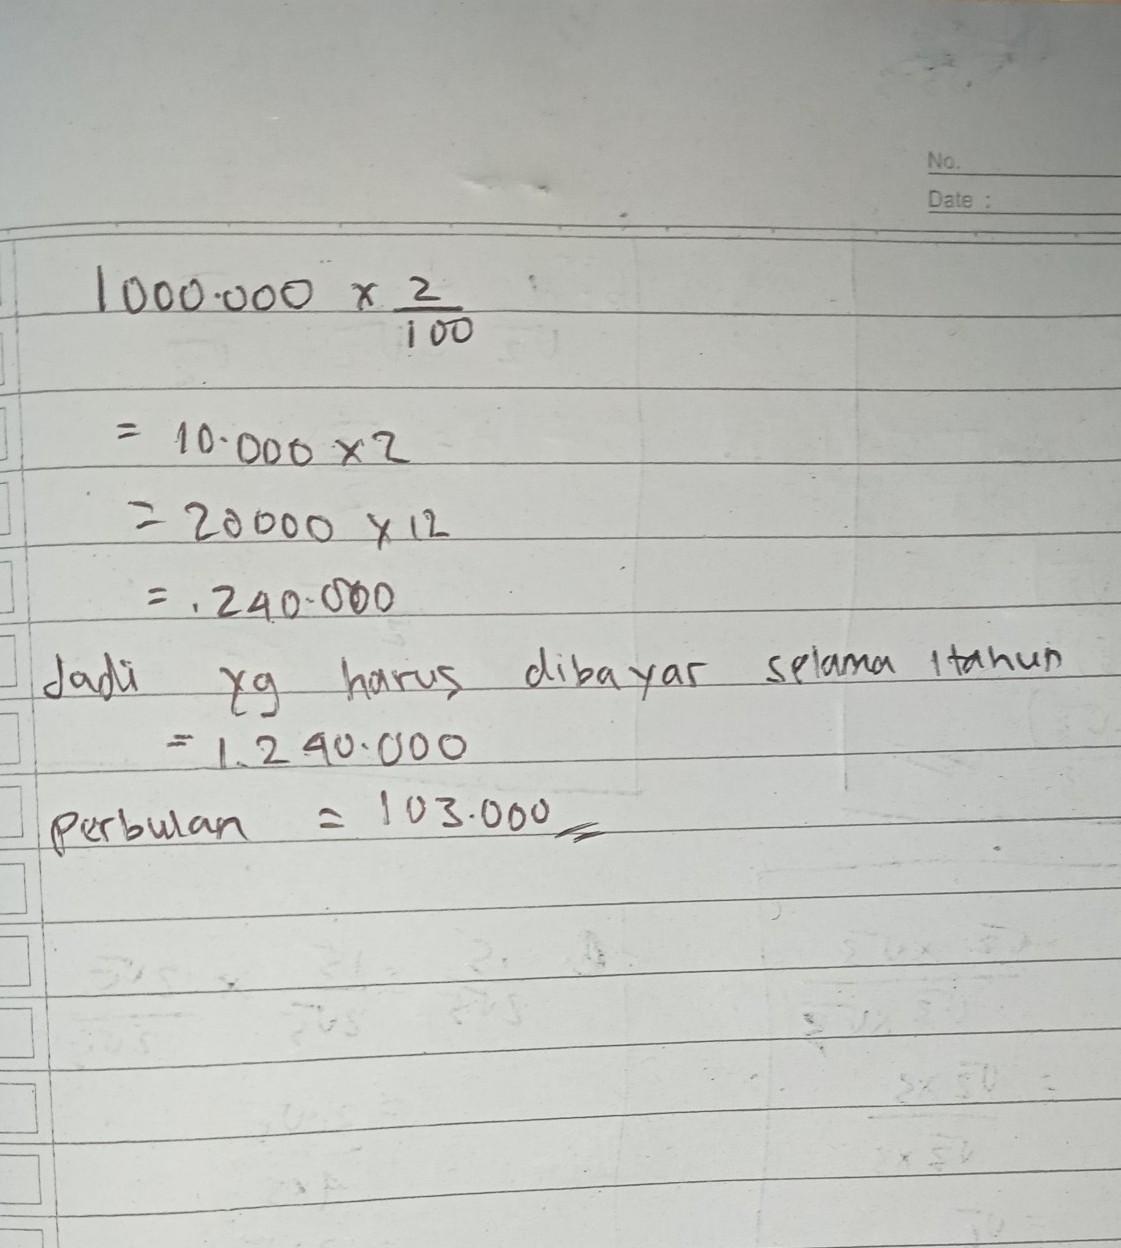 No.
Date :
1000.000 x 2/100
= 10.000 x 2
= 20000 x 12
= . 240.000
Jadi yg harus dibayar selama 1 tahun
= 1.240.000
perbulan = 103.000